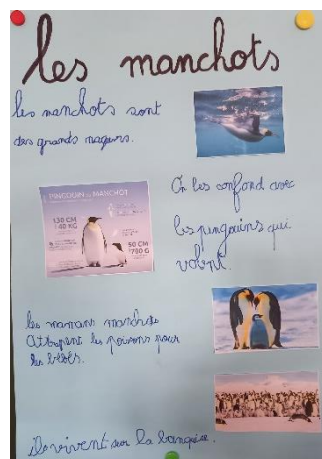 les manchots
les manchots sont
des grands nageurs.
PINGOUIN OU MANCHOT
130 CM
40 KG
50 CM
700 G
On les confond avec
les pingouins qui
volent.
les mamans manchots
attrapent les poissons pour
les bébés.
ils vivent sur la banquise.